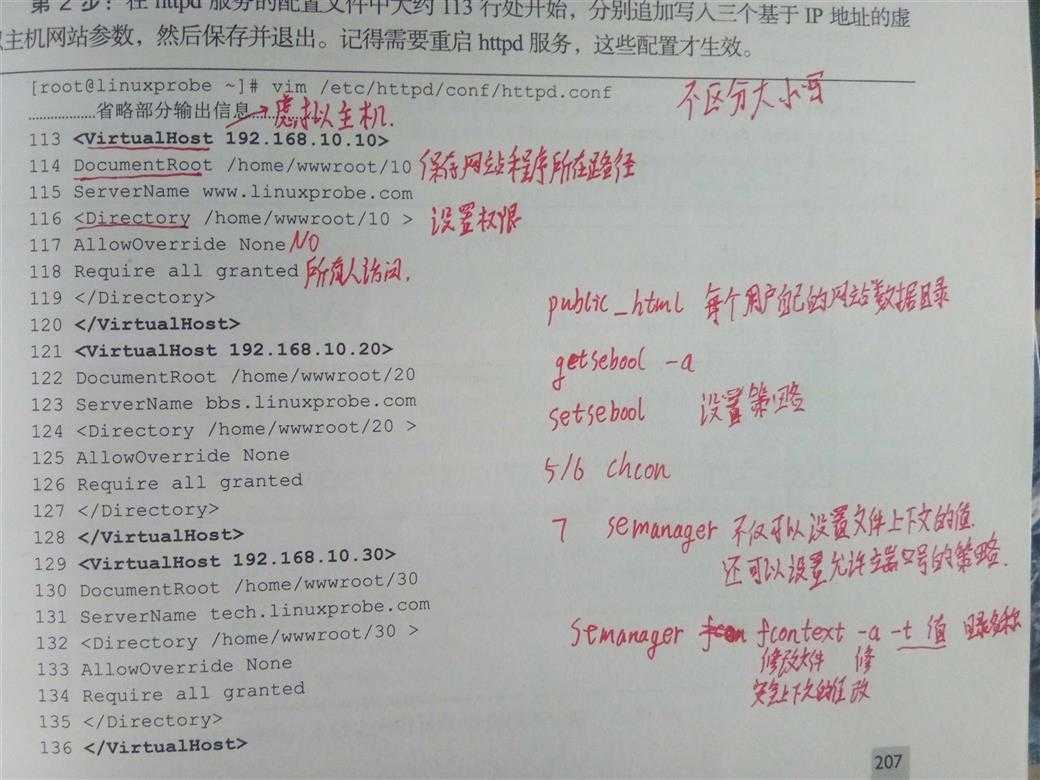 第 2 步：在 httpd 服务的配置文件中大约 113 行处开始，分别追加写入三个基于 IP 地址的虚
拟主机网站参数，然后保存并退出。记得需要重启 httpd 服务，这些配置才生效。
[root@linuxprobe ~]# vim /etc/httpd/conf/httpd.conf 不区分大小写
………………省略部分输出信息……→虚拟主机.
113 <VirtualHost 192.168.10.10>
114 DocumentRoot /home/wwwroot/10 保存网站程序所在路径
115 ServerName www.linuxprobe.com
116 <Directory /home/wwwroot/10 > 设置权限
117 AllowOverride None NO
118 Require all granted 所有人访问.
119 </Directory>
public_html 每个用户自己的网站数据目录
120 </VirtualHost>
121 <VirtualHost 192.168.10.20>
getsebool -a
122 DocumentRoot /home/wwwroot/20
123 ServerName bbs.linuxprobe.com
setsebool 设置策略
124 <Directory /home/wwwroot/20 >
125 AllowOverride None
5/6 chcon
126 Require all granted
127 </Directory>
7 semanager 不仅可以设置文件上下文的值.
128 </VirtualHost>
129 <VirtualHost 192.168.10.30>
还可以设置允许端口号的策略.
130 DocumentRoot /home/wwwroot/30
131 ServerName tech.linuxprobe.com
132 <Directory /home/wwwroot/30 >
semanager fcontext -a -t 值 目录名称
133 AllowOverride None
修改文件 修
134 Require all granted
安全上下文的值 改
135 </Directory>
136 </VirtualHost>
207